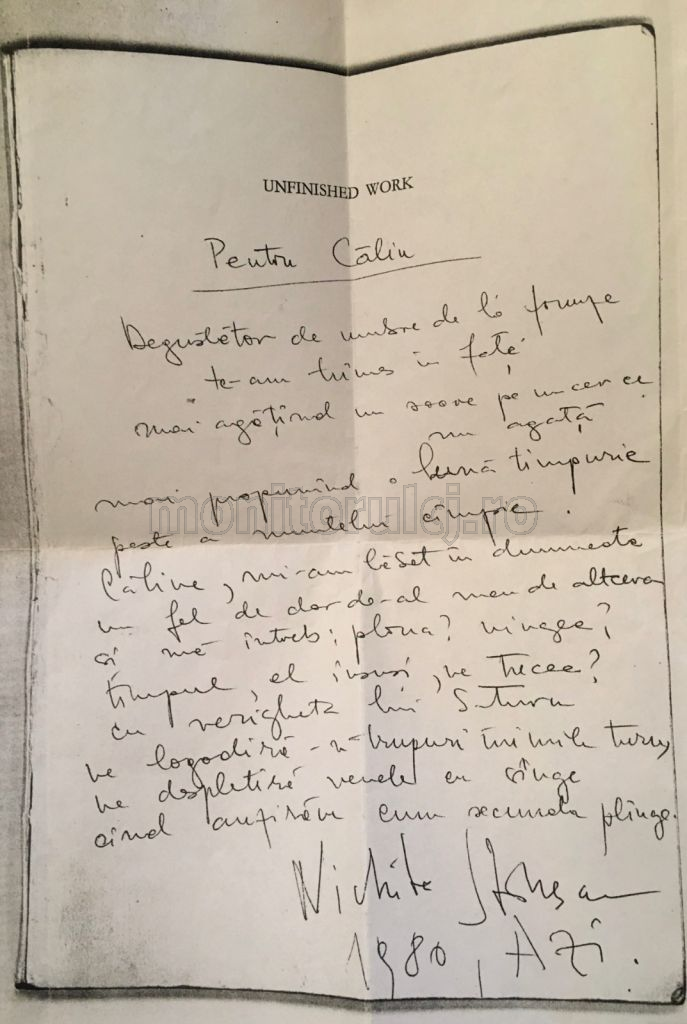 UNFINISHED WORK
Pentru Călin
Degustător de umbre de la frunze
te-am trimes în față
mai agățînd un soare pe un cer ce
nu agață
mai propunînd o lună timpurie
peste a muntelui cîmpie.
monitorulcj.ro
Căline, mi-am lăsat în dumneata
un fel de dor de-al meu de altceva
și mă întreb: ploua? ningea?
timpul, el însuși, ne trecea?
cu verigheta lui Saturn
ne logodiră-n trupuri inimile
ne despletiră venele cu sînge
cînd auzirăm cum secunda plînge.
Nichita Stănescu
1980, Azi.